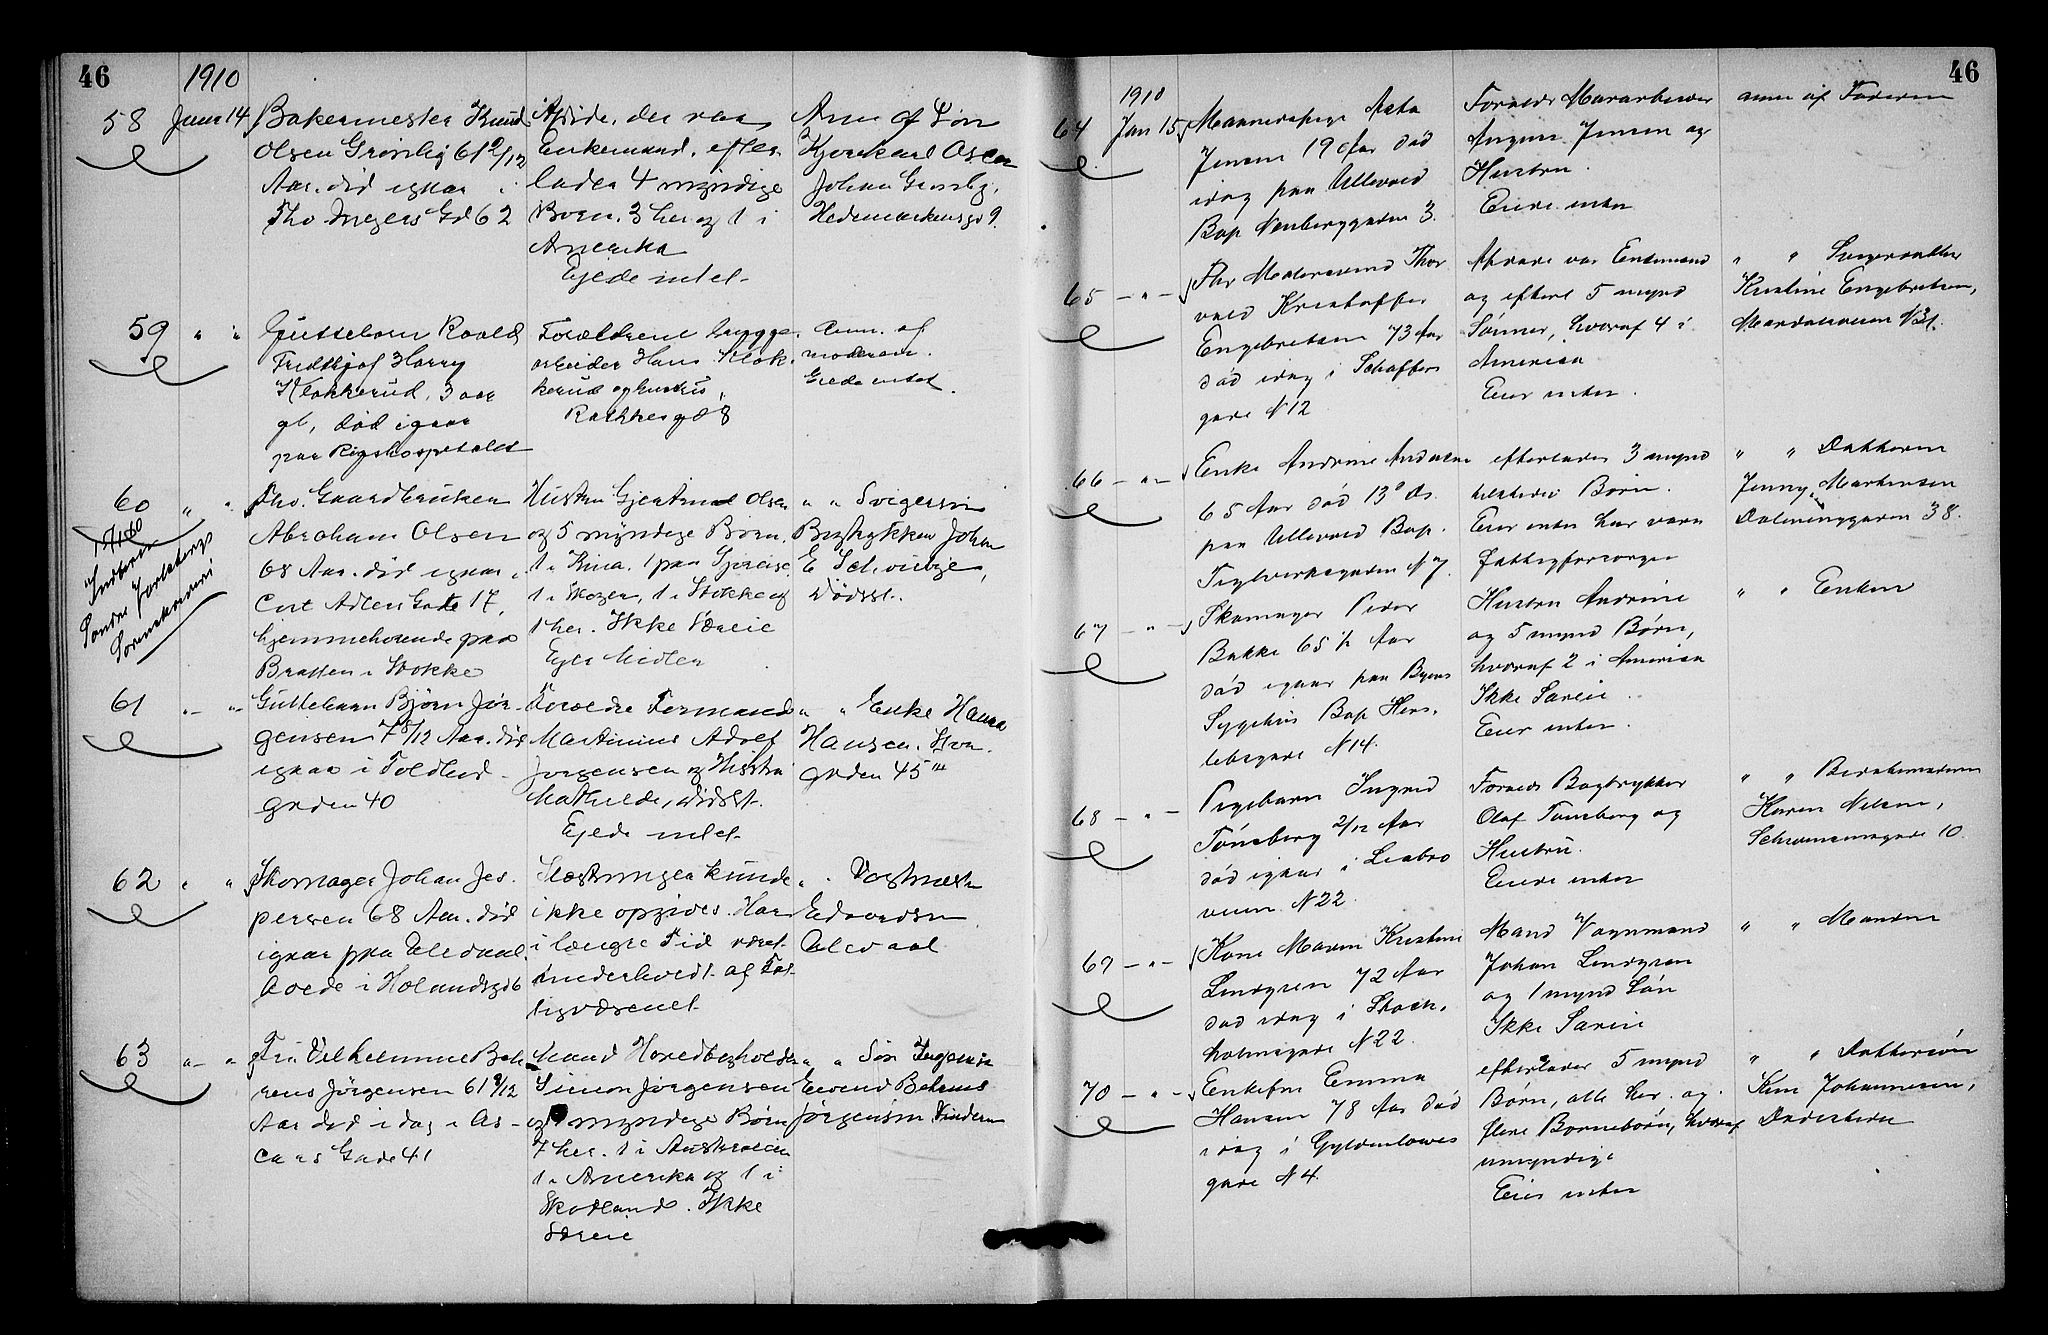 46
1910
58 Januar 14
Bakermester Knud
Olsen Grönlig 61 2/12
Aar. död igaar i
Tho. Meyers Gd 62
Afdøde, der var
Enkemand, efter
lader 4 myndige
Born, 3 her og 1 i
Amerika
Ejede intet
Anm. af Søn
Oscar
Johan Grönlig,
Hedemarkensgd 9.
59 " "
Guttebarn Roald
Fridthjof Harry
Klokkerud, 3 aar
gl, död igaar
paa Rigshospitalet
Forældrene brygge-
arbeider Hans Klok-
kerud og hustru,
Rathkesgd 8
Anm. af
moderen.
Eiede intet.
60 " "
Fhv. Gaardbruker
Abraham Olsen
68 Aar. död igaar i
Curt Adlers Gate 17,
hjemmehørende paa
Bratten i Stokke
Hustru Gjertrud Olsen
og 5 myndige Born,
1 i Kina, 1 paa
1 i Skogen, 1 i Stokke og
1 her. Ikke Særeie
Eier Midler
" " Svigersøn
Bogtrykker Johan
E
Dödsst.
17/1 80
Indberet
Søndre Jarlsbergs
Sorenskriveri
61 " "
Guttebarn Bjørn Jør-
gensen 7 8/12 Aar. död
igaar i Toldbod-
gaden 40
Foreldre Formand
Martinius Adolf
Jorgensen og Hustru
Mathilde, Dödsst.
Ejede intet
" " Enke Hanna
Hansen,
gaden 45 III
62 " "
Skomager Johan Jes-
persen 68 Aar. död
igaar paa Ullevaal
boede i Holandsgd 6
Slægtninger kunde
ikke opgives. Har
i længre Tid været
underholdt af Fat-
tigvæsenet
" " Vagtmester
Edvardsen
Ulevaal
63 " "
Fru Vilhelmine Beh-
rens Jörgensen 61 9/12
Aar död i dag i Os-
cars Gade 41
Mand Hovedbogholder
Simon Jørgensen
og myndige Børn
7 her. 1 i Australien
1 i Amerika og 1 i
Skotland. Ikke
Særeie
" " Søn Ingeniør
Eivind Behrens
Jörgensen Vinderen
46
1910
64 Jan 15
Asta
Jensen 19 Aar död
idag paa Ullevaal
Bop. Nordbygaden 3
Foreldr Murarbeider
August Jensen og
Hustru.
Eiede intet
anm af Faderen
65 - " -
Fhv Thor
vald Kristoffer
Engebretsen 73 Aar
död idag i Schaffers
gade N 12
Afdøde var Enkemand
og efterl 5 mynd
Sønner, hvoraf 4 i
Amerika
Eier intet.
" " Svigerdatter
Kristine Engebretsen,
66 - " -
Enke Andrine Andersen
65 Aar död 13de ds.
paa Ullevaal Bop.
Teglverksgaden N 7.
efterlader 3 mynd
Born.
Eier intet har været
fattigforsørget
" " Datteren
Jenny Martinsen
Dælenenggaden 38.
67 - " -
Skomager Peder
Bakke 65 1/2 Aar
död igaar paa Byens
Sygehus Bop Hers-
lebsgade N 14.
Hustru Andrine
og 5 mynd Børn,
hvoraf 2 i Amerika
Ikke Særeie
Eier intet.
" " Enken
68 - " -
Pigebarn Ingrid
Tönsberg 2/12 Aar
död igaar i Liabro
veien N 22
Foreldr Bogtrykker
Olaf Tönsberg og
Hustru.
Eiede intet
" " Bestemoderen
Karen Nilsen,
Schweensensgade 10.
69 - " -
Kone Maren Kristine
Lindgren 72 Aar
død idag i Stock-
holmsgade N 22.
Mand Vognmand
Johan Lindgren
og 1 mynd Søn
Ikke Særeie
" " Manden
70 - " -
Enkefru Emma
Hansen 78 Aar død
idag i Gyldenløves
gade N 4.
efterlader 5 mynd
Børn, alle her og
flere Børnebørn, hvoraf
umyndige
Eier intet
" " Dattersön
Johannesen,